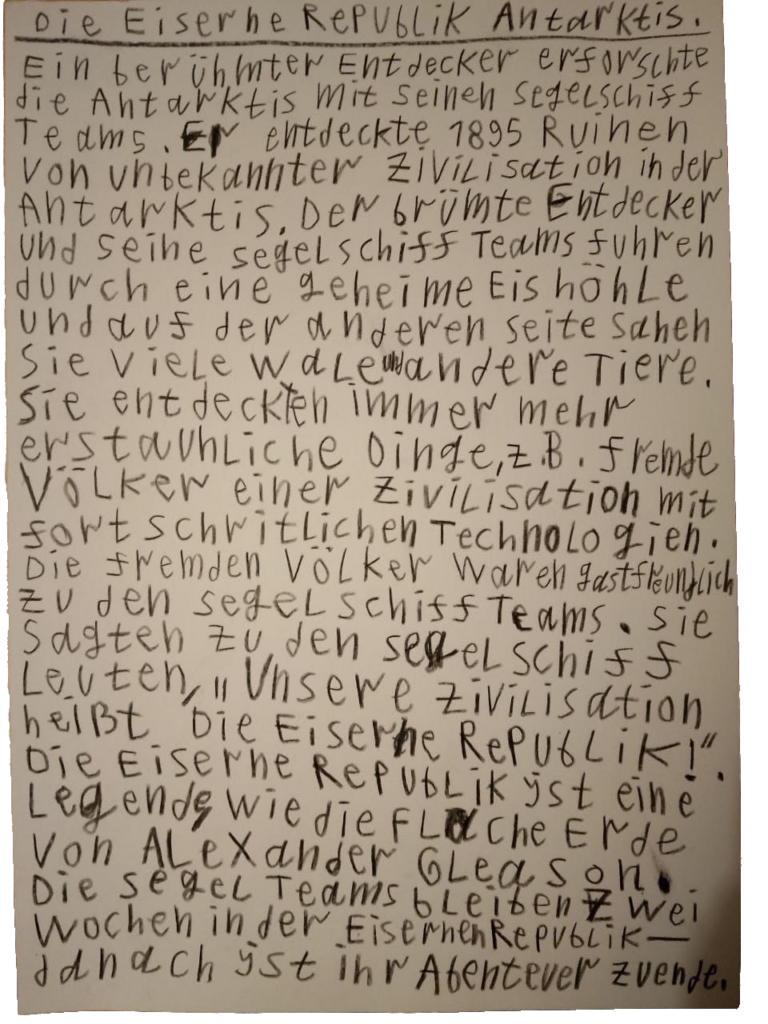 Die Eiserne Republik Antarktis.
Ein berühmter Entdecker erforschte
die Antarktis mit seinen segelschiff
Teams. Er entdeckte 1895 Ruinen
von unbekannter Zivilisation in der
Antarktis. Der brümte Entdecker
und seine segelschiff Teams fuhren
durch eine geheime Eishöhle
und auf der anderen seite sahen
Sie viele Wale und andere Tiere.
Sie entdeckten immer mehr
erstaunliche Dinge, z.B. fremde
Völker einer Zivilisation mit
fortschritlichen Technologien.
Die fremden Völker waren gastfreundlich
zu den segelschiff Teams. Sie
sagten zu den segelschiff
Leuten, „Unsere Zivilisation
heißt Die Eiserne Republik!“.
Die Eiserne Republik ist eine
Legende, wie die Flache Erde
von Alexander Gleason.
Die segel Teams bleiben zwei
Wochen in der Eisernen Republik—
danach ist ihr Abenteuer zuende.